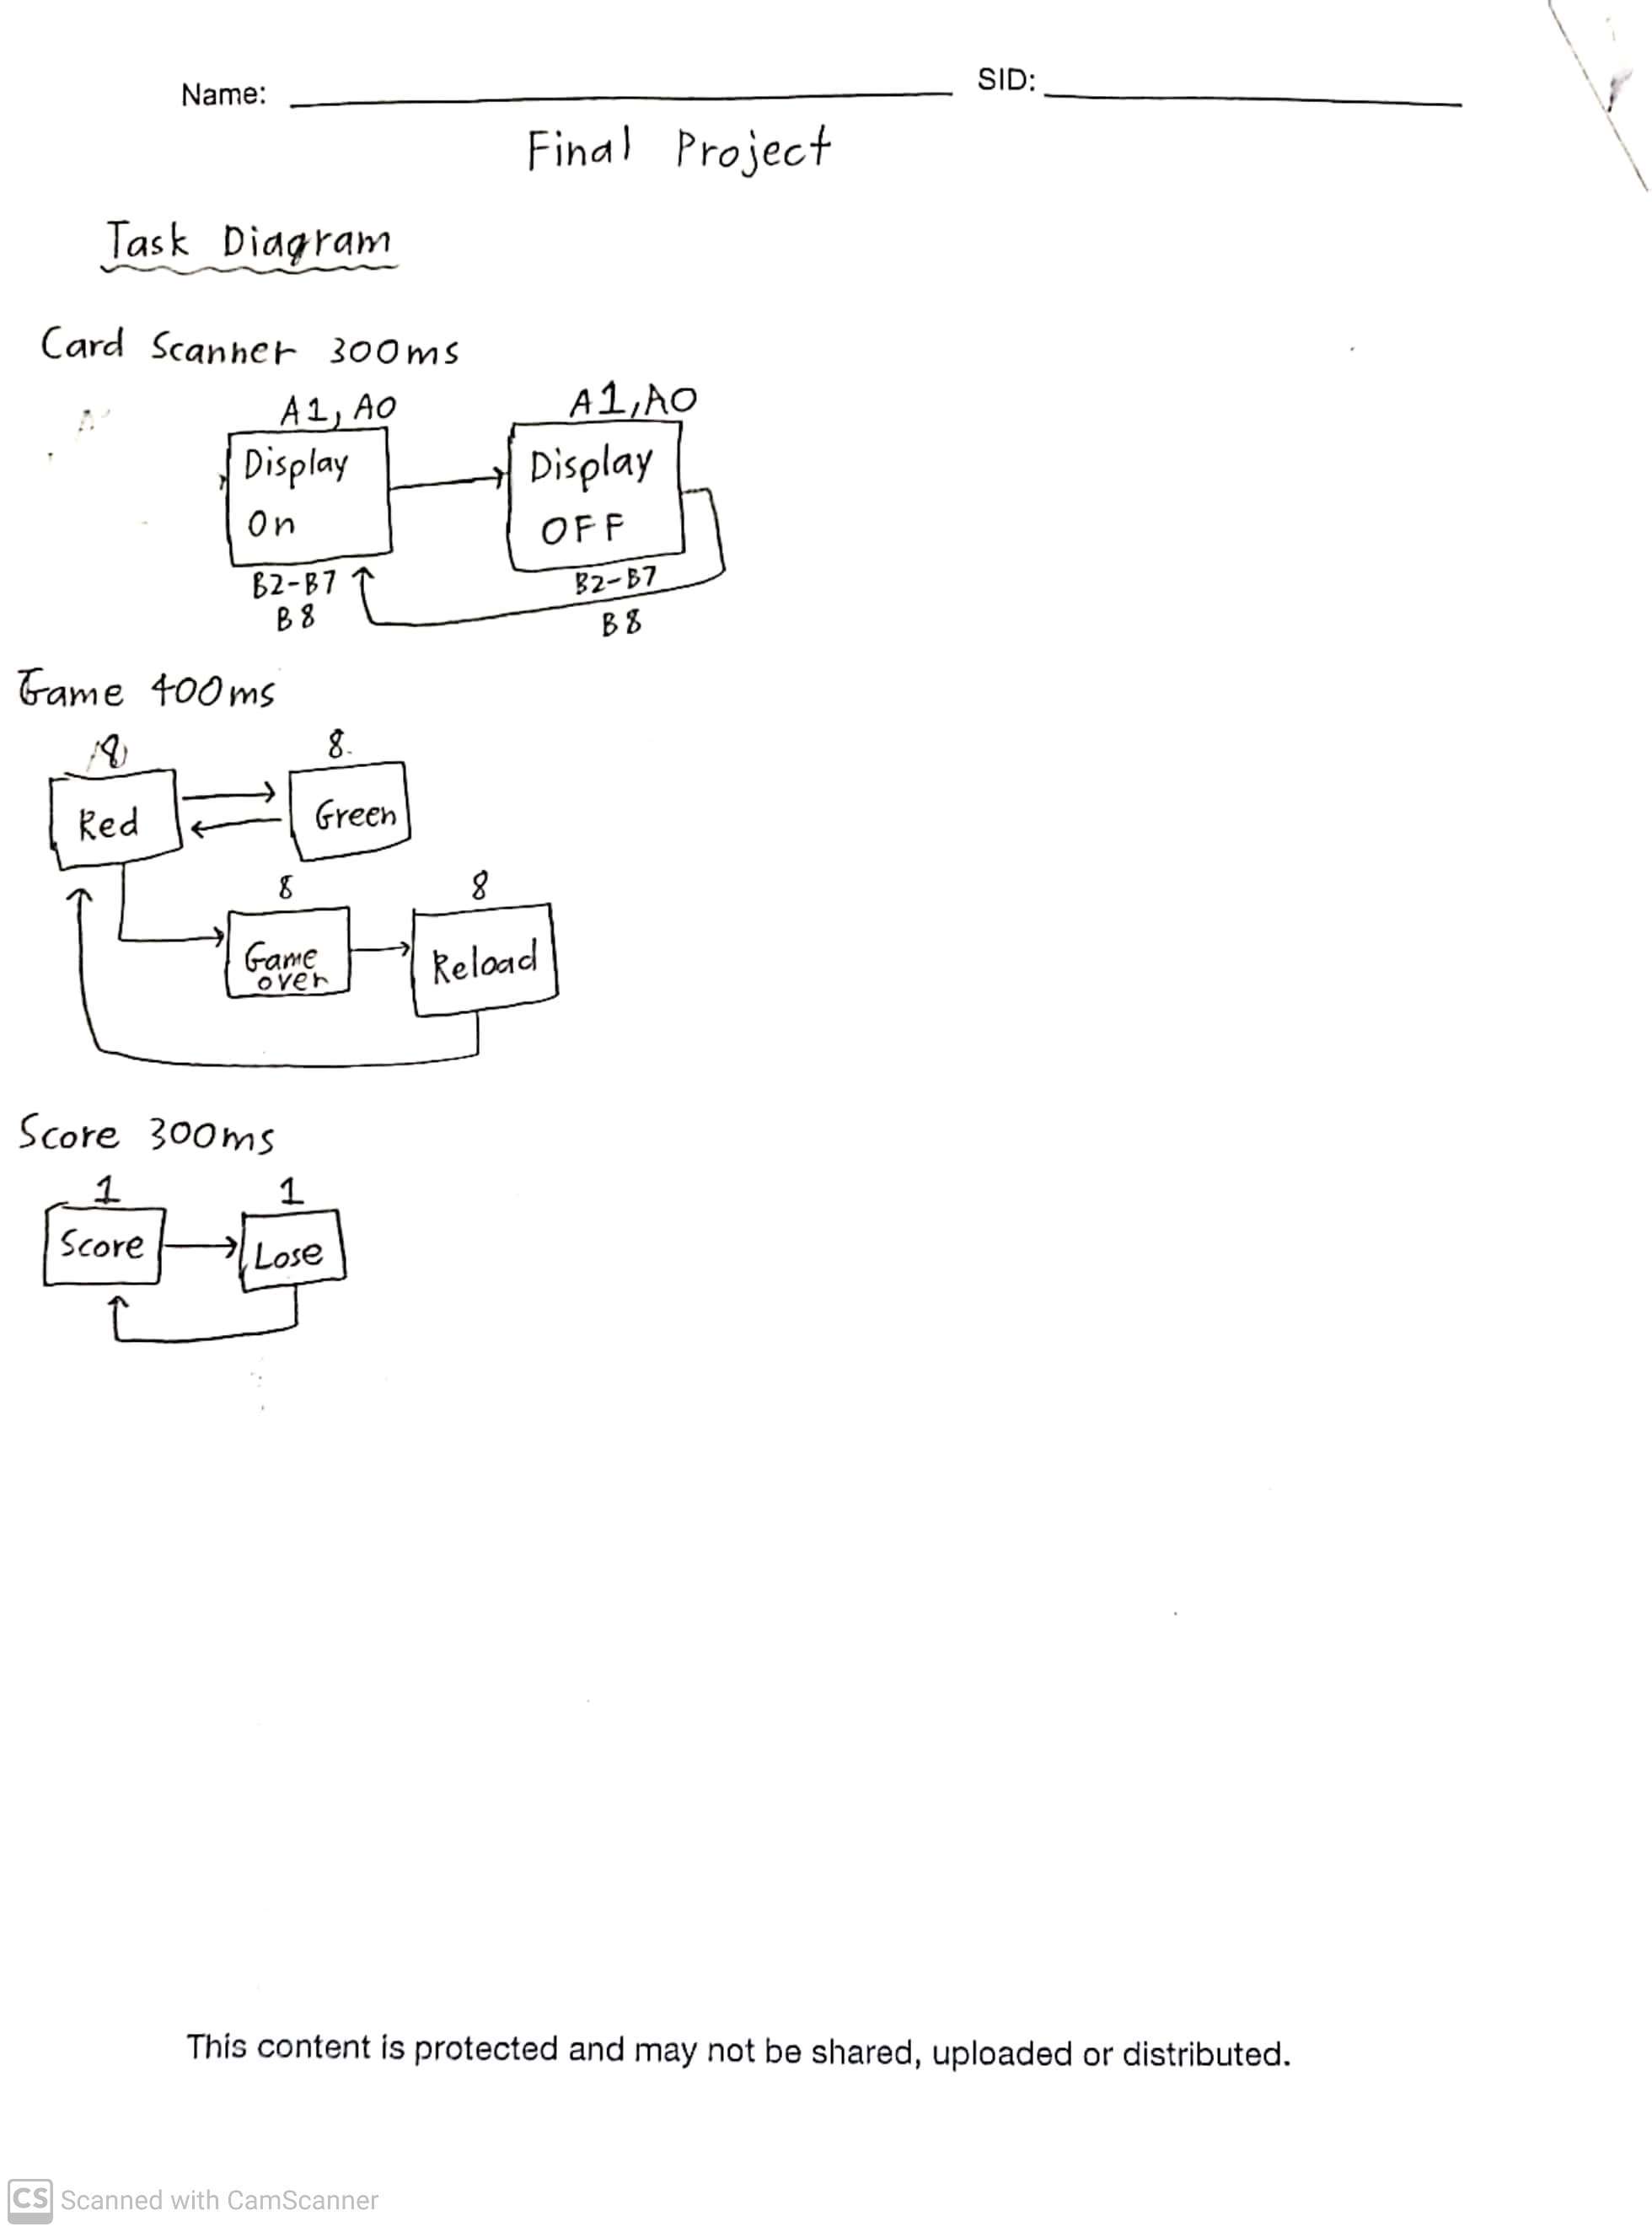 Name: SID:
Final Project
Task Diagram
Card Scanner 300ms
A1, A0 A1, A0
Display On
Display OFF
B2-B7 B2-B7
B8 B8
Game 400ms
8 8
Red Green
8 8
Game over
Reload
Score 300ms
1 1
Score Lose
This content is protected and may not be shared, uploaded or distributed.
CS Scanned with CamScanner